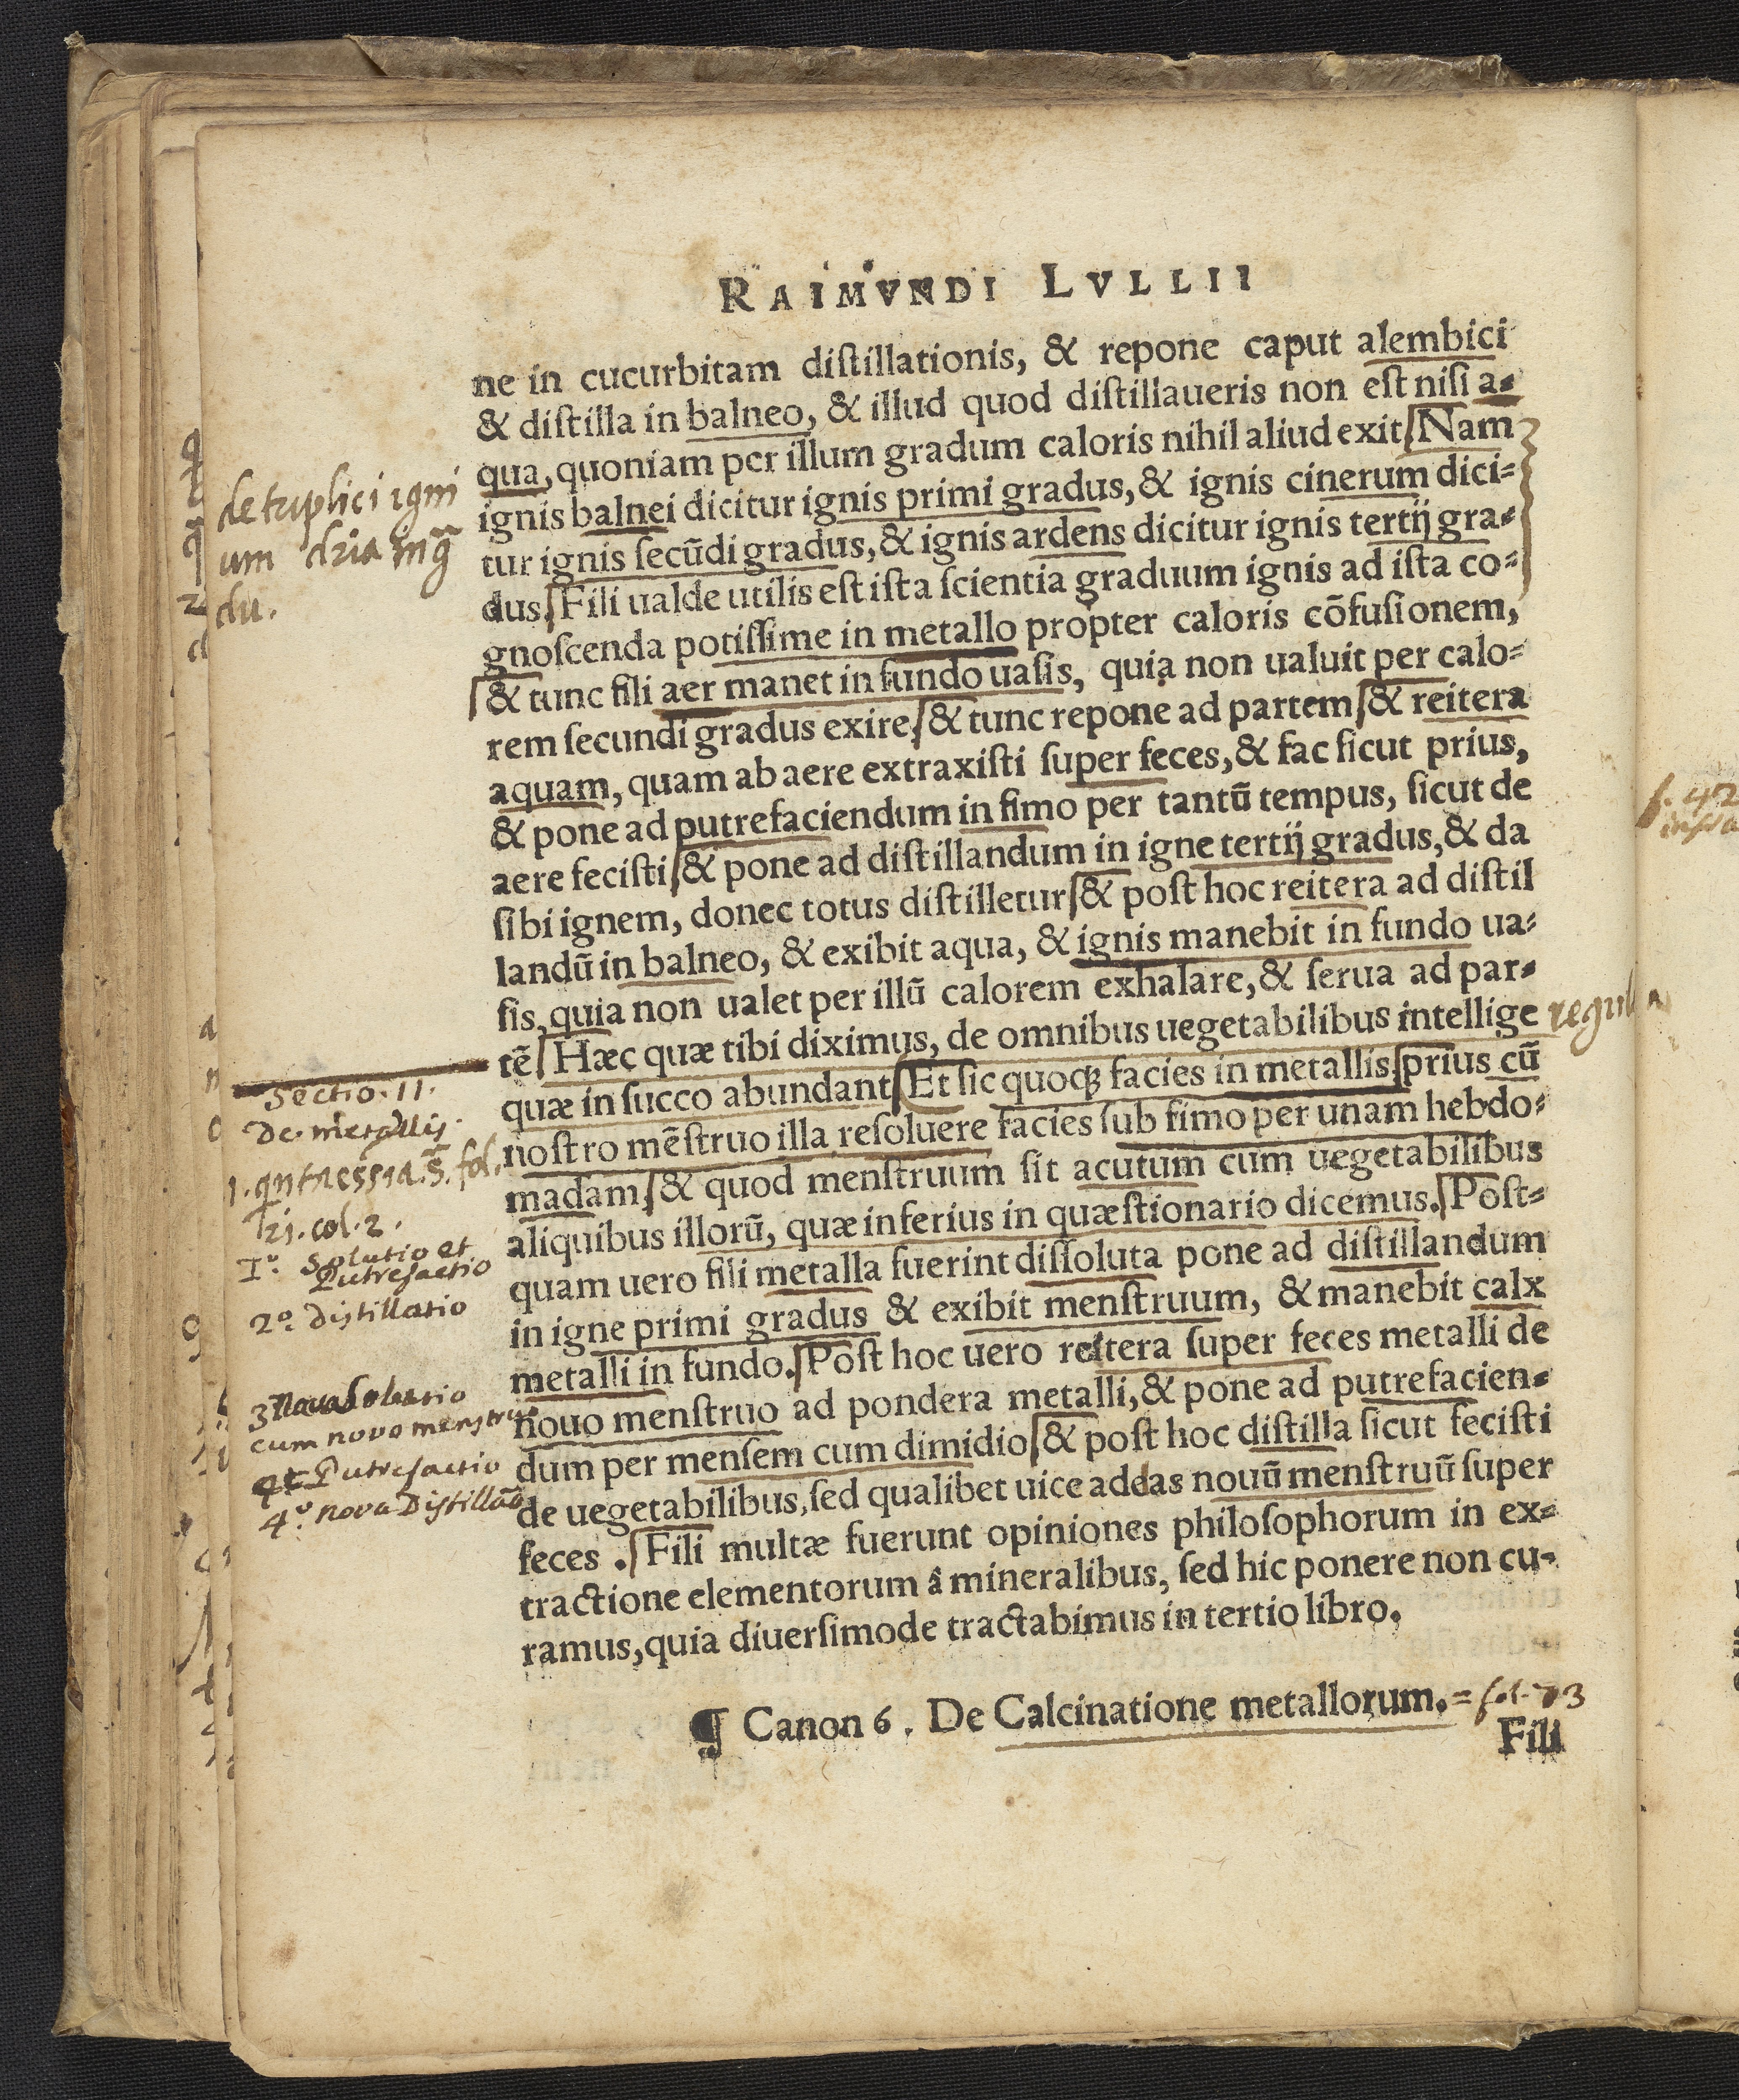 RAIMVNDI LVLLII
ne in cucurbitam diſtillationis, & repone caput alembici
& diſtilla in balneo, & illud quod diſtillaueris non eſt niſi a-
qua, quoniam per illum gradum caloris nihil aliud exit. Nam
ignis balnei dicitur ignis primi gradus, & ignis cinerum dici-
tur ignis ſecūdi gradus, & ignis ardens dicitur ignis tertij gra-
dus. Fili ualde utilis eſt iſta ſcientia graduum ignis ad iſta co-
gnoſcenda potiſſime in metallo propter caloris cōfuſionem,
& tunc fili aer manet in fundo uaſis, quia non ualuit per calo-
rem ſecundi gradus exire, & tunc repone ad partem & reitera
aquam, quam ab aere extraxiſti ſuper feces, & fac ſicut prius,
& pone ad putrefaciendum in fimo per tantū tempus, ſicut de
aere feciſti, & pone ad diſtillandum in igne tertij gradus, & da
ſibi ignem, donec totus diſtilletur & poſt hoc reitera ad diſtil
landū in balneo, & exibit aqua, & ignis manebit in fundo ua-
ſis, quia non ualet per illū calorem exhalare, & ſerua ad par-
tē. Hæc quæ tibi diximus, de omnibus uegetabilibus intellige
quæ in ſucco abundant. Et ſic quoqꝫ facies in metallis, prius cū
noſtro mēſtruo illa reſoluere facies ſub fimo per unam hebdo-
madam, & quod menſtruum ſit acutum cum uegetabilibus
aliquibus illorū, quæ inferius in quæſtionario dicemus. Poſt-
quam uero fili metalla fuerint diſſoluta pone ad diſtillandum
in igne primi gradus & exibit menſtruum, & manebit calx
metalli in fundo. Poſt hoc uero reitera ſuper feces metalli de
nouo menſtruo ad pondera metalli, & pone ad putrefacien-
dum per menſem cum dimidio, & poſt hoc diſtilla ſicut feciſti
de uegetabilibus, ſed qualibet uice addas nouū menſtruū ſuper
feces. Fili multæ fuerunt opiniones philoſophorum in ex-
tractione elementorum â mineralibus, ſed hic ponere non cu-
ramus, quia diuerſimode tractabimus in tertio libro.
¶ Canon 6. De Calcinatione metallorum. = fol. 73
Fili
de triplici igni
um dria in g̃
du.
regula
Sectio. 11.
De metallis.
1. qntaessia. s̃. fol.
21. col. 2.
1º. Solutio et
Putrefactio
2º. Distillatio
3 Nova Solutio
cum novo menstruo
et Putrefactio
4º. nova Distillatõ
f. 42
infra